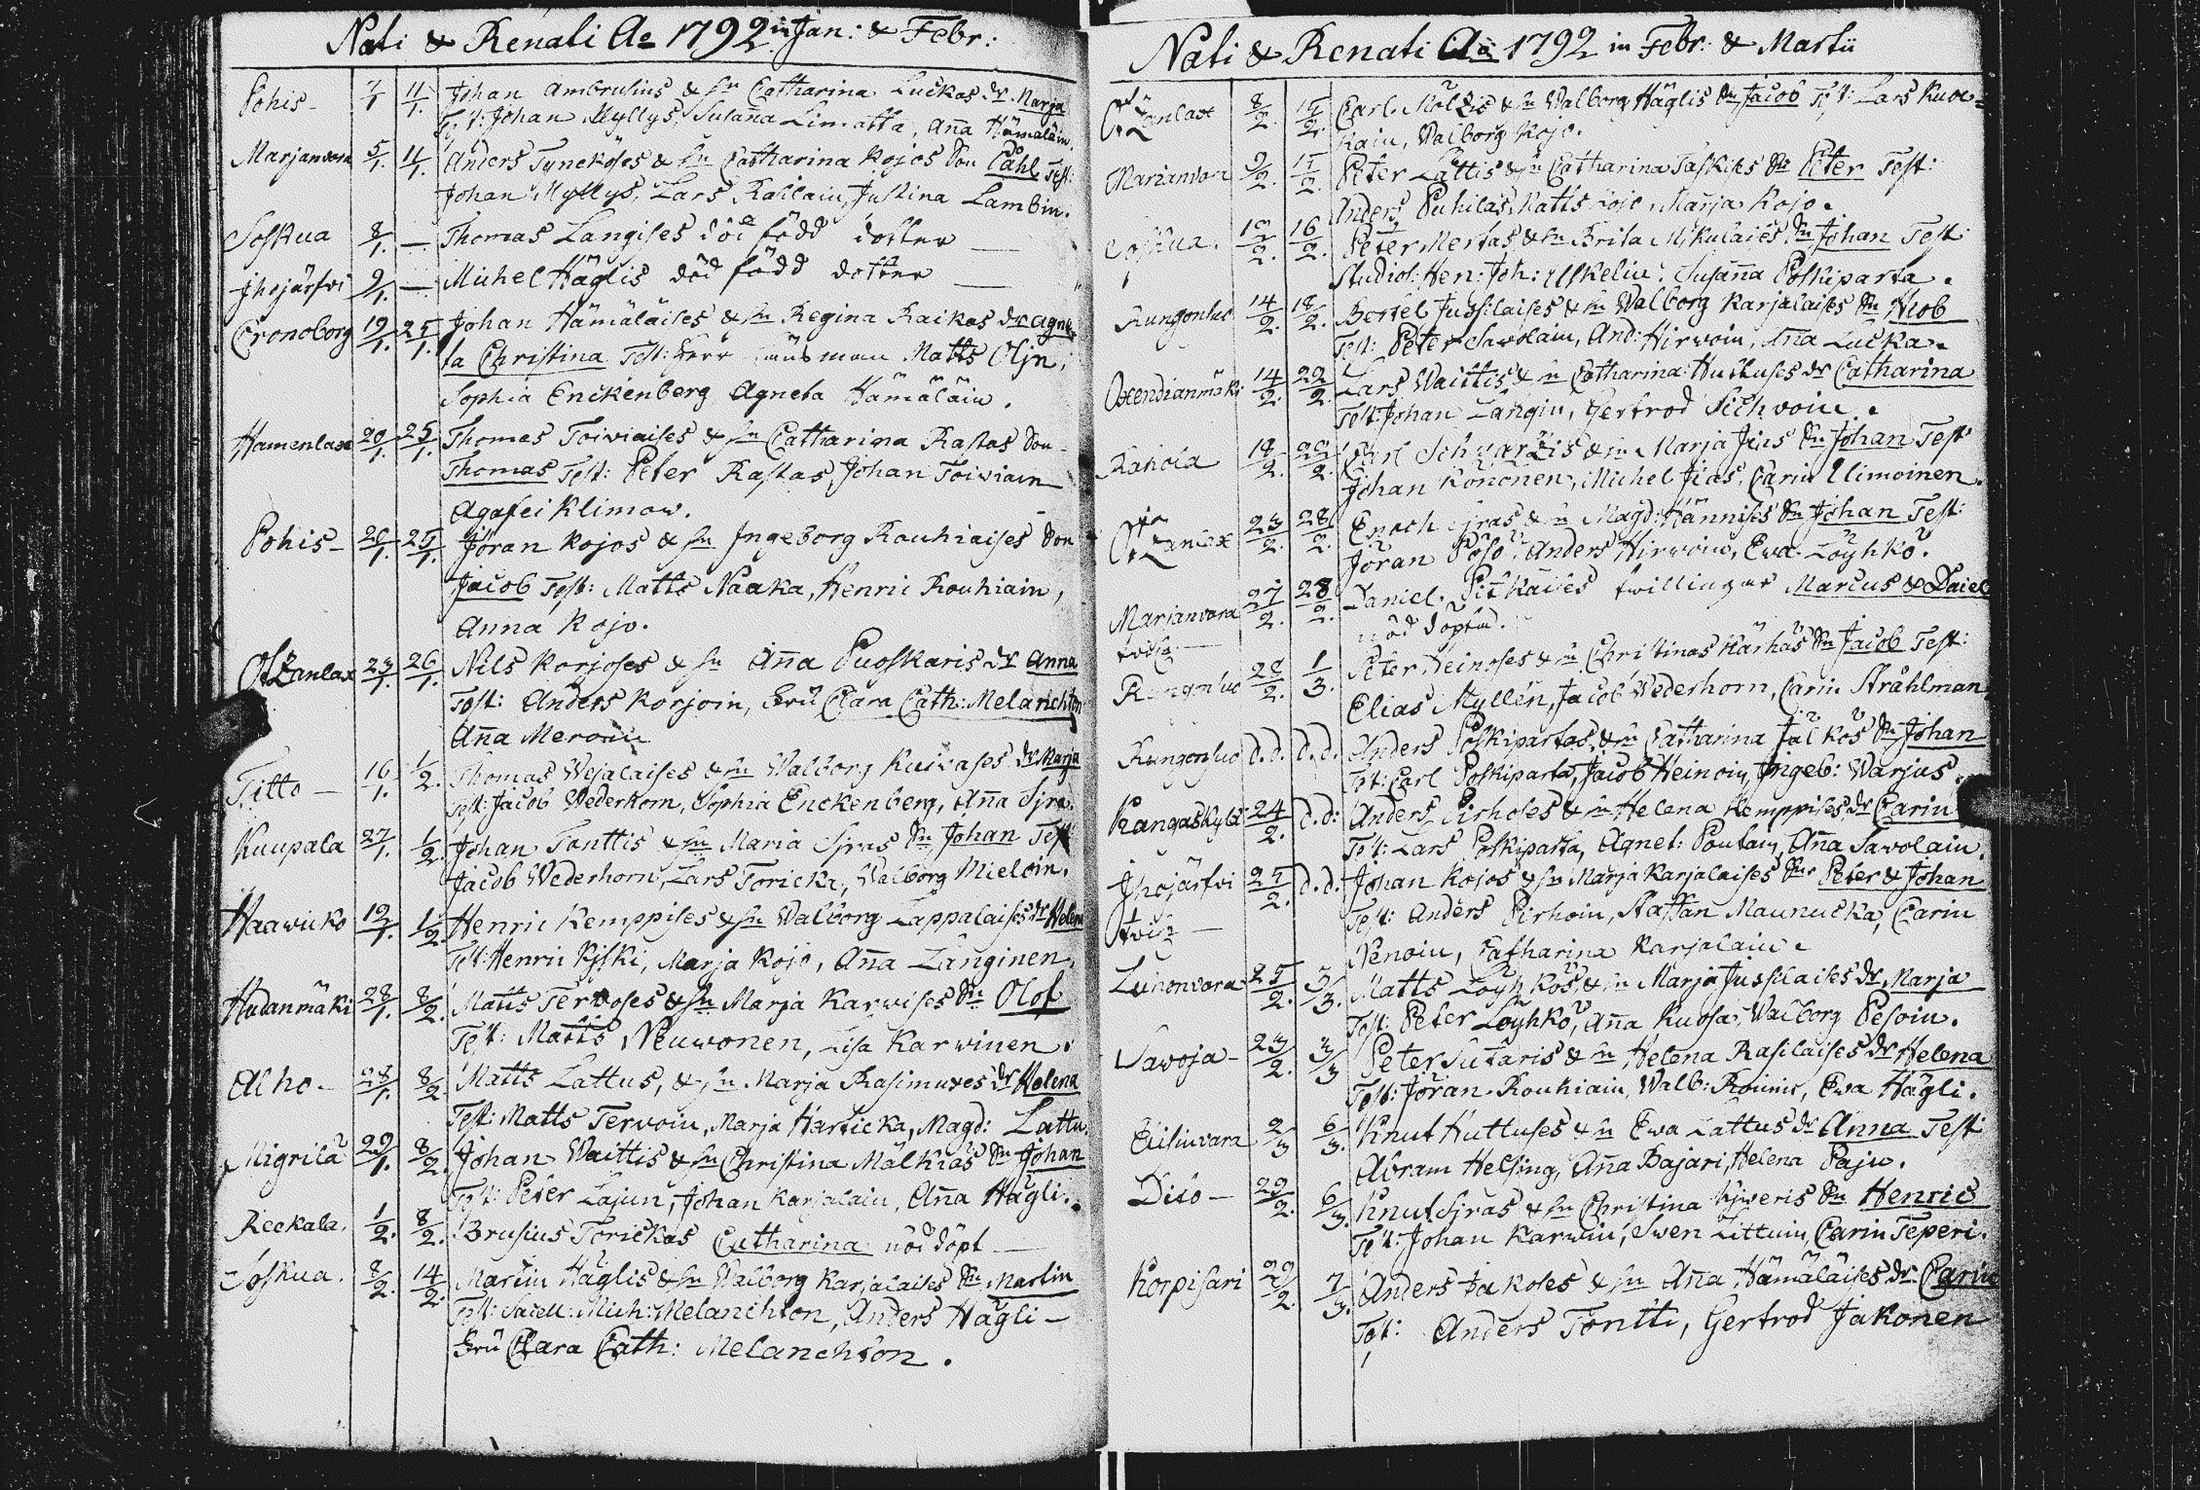 Nati & Renati Ao 1792 in Jan: & Febr:
Pohis- 7/1 11/1. Johan Ambrusius & hu Catharina Luckas dr Marja
Test: Johan Myllys, Susana Limatta, Aña Hämäläin.
Marjanvara 5/1. 11/1. Anders Tyneköses & hu Catharina Kojos Son Påhl Test:
Johan Myllys, Lars Railain, Justina Lambin.
Soskua 8/1. — Thomas Langises död född dotter —
Ihojärfvi 9/1. — Michel Häglis död född dotter —
Cronoborg 19/1. 25/1. Johan Hämäläises & hu Regina Raikas dr Agne-
ta Christina Test: Herr Länsman Matts Oljn,
Sophia Enckenberg Agneta Hämäläin.
Hamenlax 20/1. 25/1. Thomes Toiviaises & hu Catharina Rastas Son
Thomas Test: Peter Rastas, Johan Toiviain
Agafei Klimow.
Pohis- 20/1. 25/1. Jöran Kojos & hu Ingeborg Rouhiaises Son
Jacob Test: Matts Naaka, Henric Rouhiain,
Anna Kojo.
Otzanlax 23/1. 26/1. Nils Korjoses & hu Aña Puoskaris dr Anna
Test: Anders Korjoin, Fru Clara Cath: Melanchton
Aña Meroin
Titto — 16/1. 1/2. Thomas Wejalaises & hu Walborg Kuivases dr Marja
Test: Jacob Wederhorn, Sophia Enckenberg, Aña Sjra.
Kuupala 27/1. 1/2. Johan Tonttis & hu Maria Sjras Sn Johan Test
Jacob Wederhorn, Lars Toricka, Walborg Mieloin.
Haawicko 19/1. 1/2. Henric Kemppises & hu Walborg Lappalaises dr Helena
Test: Henric Rjski, Marja Kojo, Aña Länginen.
Hudanmäki 28/1. 8/2. Matts Terwoses & hu Marja Karwises Sn Olof
Test: Matts Neuwonen, Lisa Karwinen.
Alho- 28/1. 8/2 Matts Lattus, & hu Marja Rasimuxes dr Helena
Test: Matts Tervoin, Marja Harticka, Magd: Lattu.
Migrilä 29/1. 8/2. Johan Waittis & hu Christina Mälkiäs Sn Johan
Test: Peter Lajun, Johan Karjalain, Aña Hägli.
Reekala. 1/2. 8/2. Brusius Torickas Catharina nöd döpt —
Soskua. 8/2. 14/2. Martin Häglis & hu Walborg Karjalaises Sn Martin
Test: Sacell: Mich: Melanchton, Anders Hägli —
Fru Clara Cath: Melanchton.
Nati & Renati Ao 1792 in Febr: & Martii
Otzanlax 8/2. 15/2. Carl Möltzis & hu Walborg Häglis Sn Jacob Test: Lars Kuok-
kain, Walborg Kojo.
Marianvara 9/2. 15/2. Peter Lättis & hu Catharina Taskises Sn Peter Test:
Anders Puhilas, Matts Kojo, Marja Kojo.
Soskua. 12/2. 16/2. Peter Mertas & hu Brita Mikulaies Sn Johan Test:
Studios: Hen: Joh: Uskelin: Susaña Poskiparta.
Kungonsuo 14/2. 18/2. Bertel Jussilaises & hu Walborg Karjalaises Sn Hiob
Test: Peter Savolain, And: Hirvoin, Aña Lucka.
Oxendianmäki 14/2. 22/2. Lars Waittis & hu Catharina Huttuses dr Catharina
Test: Johan Längin, Gertrod Sichvoin.
Rahola 18/2. 22/2. Carl Schvartzis & hu Marja Jias Sn Johan Test
Johan Könönen, Michel Jias, Carin Ulimoinen.
Otzanlax 23/2. 28/2. Enoch Sjras & hu Magd: Hännises Sn Johan Test:
Jöran Pösö, Anders Hirwoin, Ewa Löyhkö.
Marianvara 27/2. 28/2. Daniel Pitkäises twillingar Marcus & Daiel
twill. — nöd döpta.
Kungonsuo 28/2. 1/3. Peter Heinoses & hu Christinas Kärhäs Sn Jacob Test:
Elias Myllen, Jacob Wederhorn, Carin Stråhlman
Kungonsuo d.d. d.d. Anders Poskipartas & hu Catharina Jälkös Sn Johan
Test: Carl Poskiparta, Jacob Heinoin, Ingeb: Warjus.
Kangaskylä 24/2. d.d: Anders Pirhoses & hu Helena Kemppises dr Carin
Test: Lars Poskiparta, Agnet: Poutain, Aña Savolain.
Ihojärfvi 25/2. d.d. Johan Kojos & hu Marja Karjalaises Snr Peter & Johan
twill — Test: Anders Pirhoin, Staffan Maunucka, Carin
Nenoin, Catharina Karjalain.
Luhonvara 25/2. 3/3. Matts Löyhkös & hu Marja Jussilaises dr Marja
Test: Peter Löyhkö, Aña Kuosa, Walborg Pesoin.
Savoja- 23/2. 3/3 Peter Sutaris & hu Helena Rasilaises dr Helena
Test: Jöran Rouhiain, Walb: Roinis, Ewa Hägli.
Elisinvara 2/3 6/3. Knut Huttuses & hu Ewa Lattus dr Anna Test
Abram Helsing, Aña Bajari, Helena Paju.
Diso — 29/2. 6/3. Knut Sjras & hu Christina Kjweris Sn Henric
Test: Johan Karwin, Swen Littuin, Carin Teperi.
Korpisari 29/2. 7/3. Anders Jakoses & hu Aña Hämäläises dr Carin
Test: Anders Tontti, Gertrod Jakonen